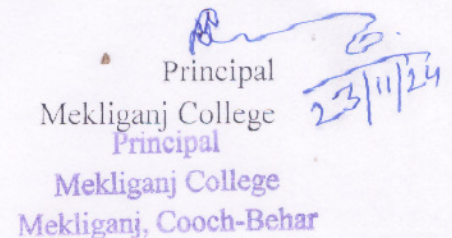 Principal
Mekliganj College
23/11/24
Principal
Mekliganj College
Mekliganj, Cooch-Behar